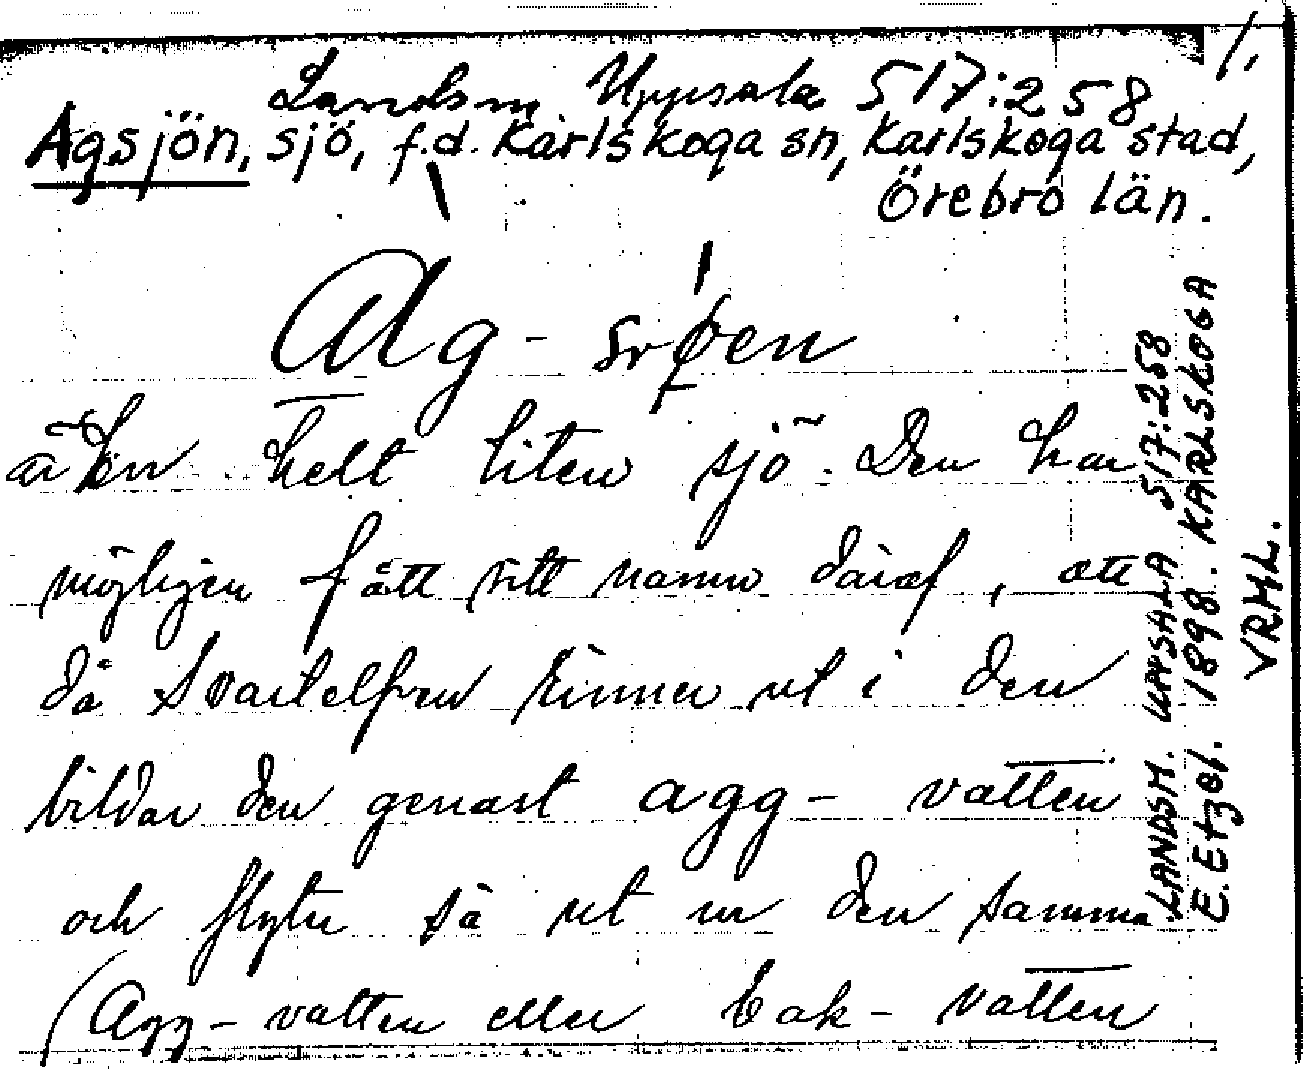 1.
Landsm. Uppsala 517:258
Agsjön, sjö, f.d. Karlskoga sn, Karlskoga stad,
Örebro län.
Ag-
är en helt liten sjö. Den har
möjligen fått sitt namn däraf, att
då Svartelfven rinner ut i den
bildar den genast agg-vatten
och flyter så ut ur den samma
(Agg-vatten eller bak-vatten
LANDSM. UPPSALA 517:258
E. Etzel. 1898. KARLSKOGA
VRML.